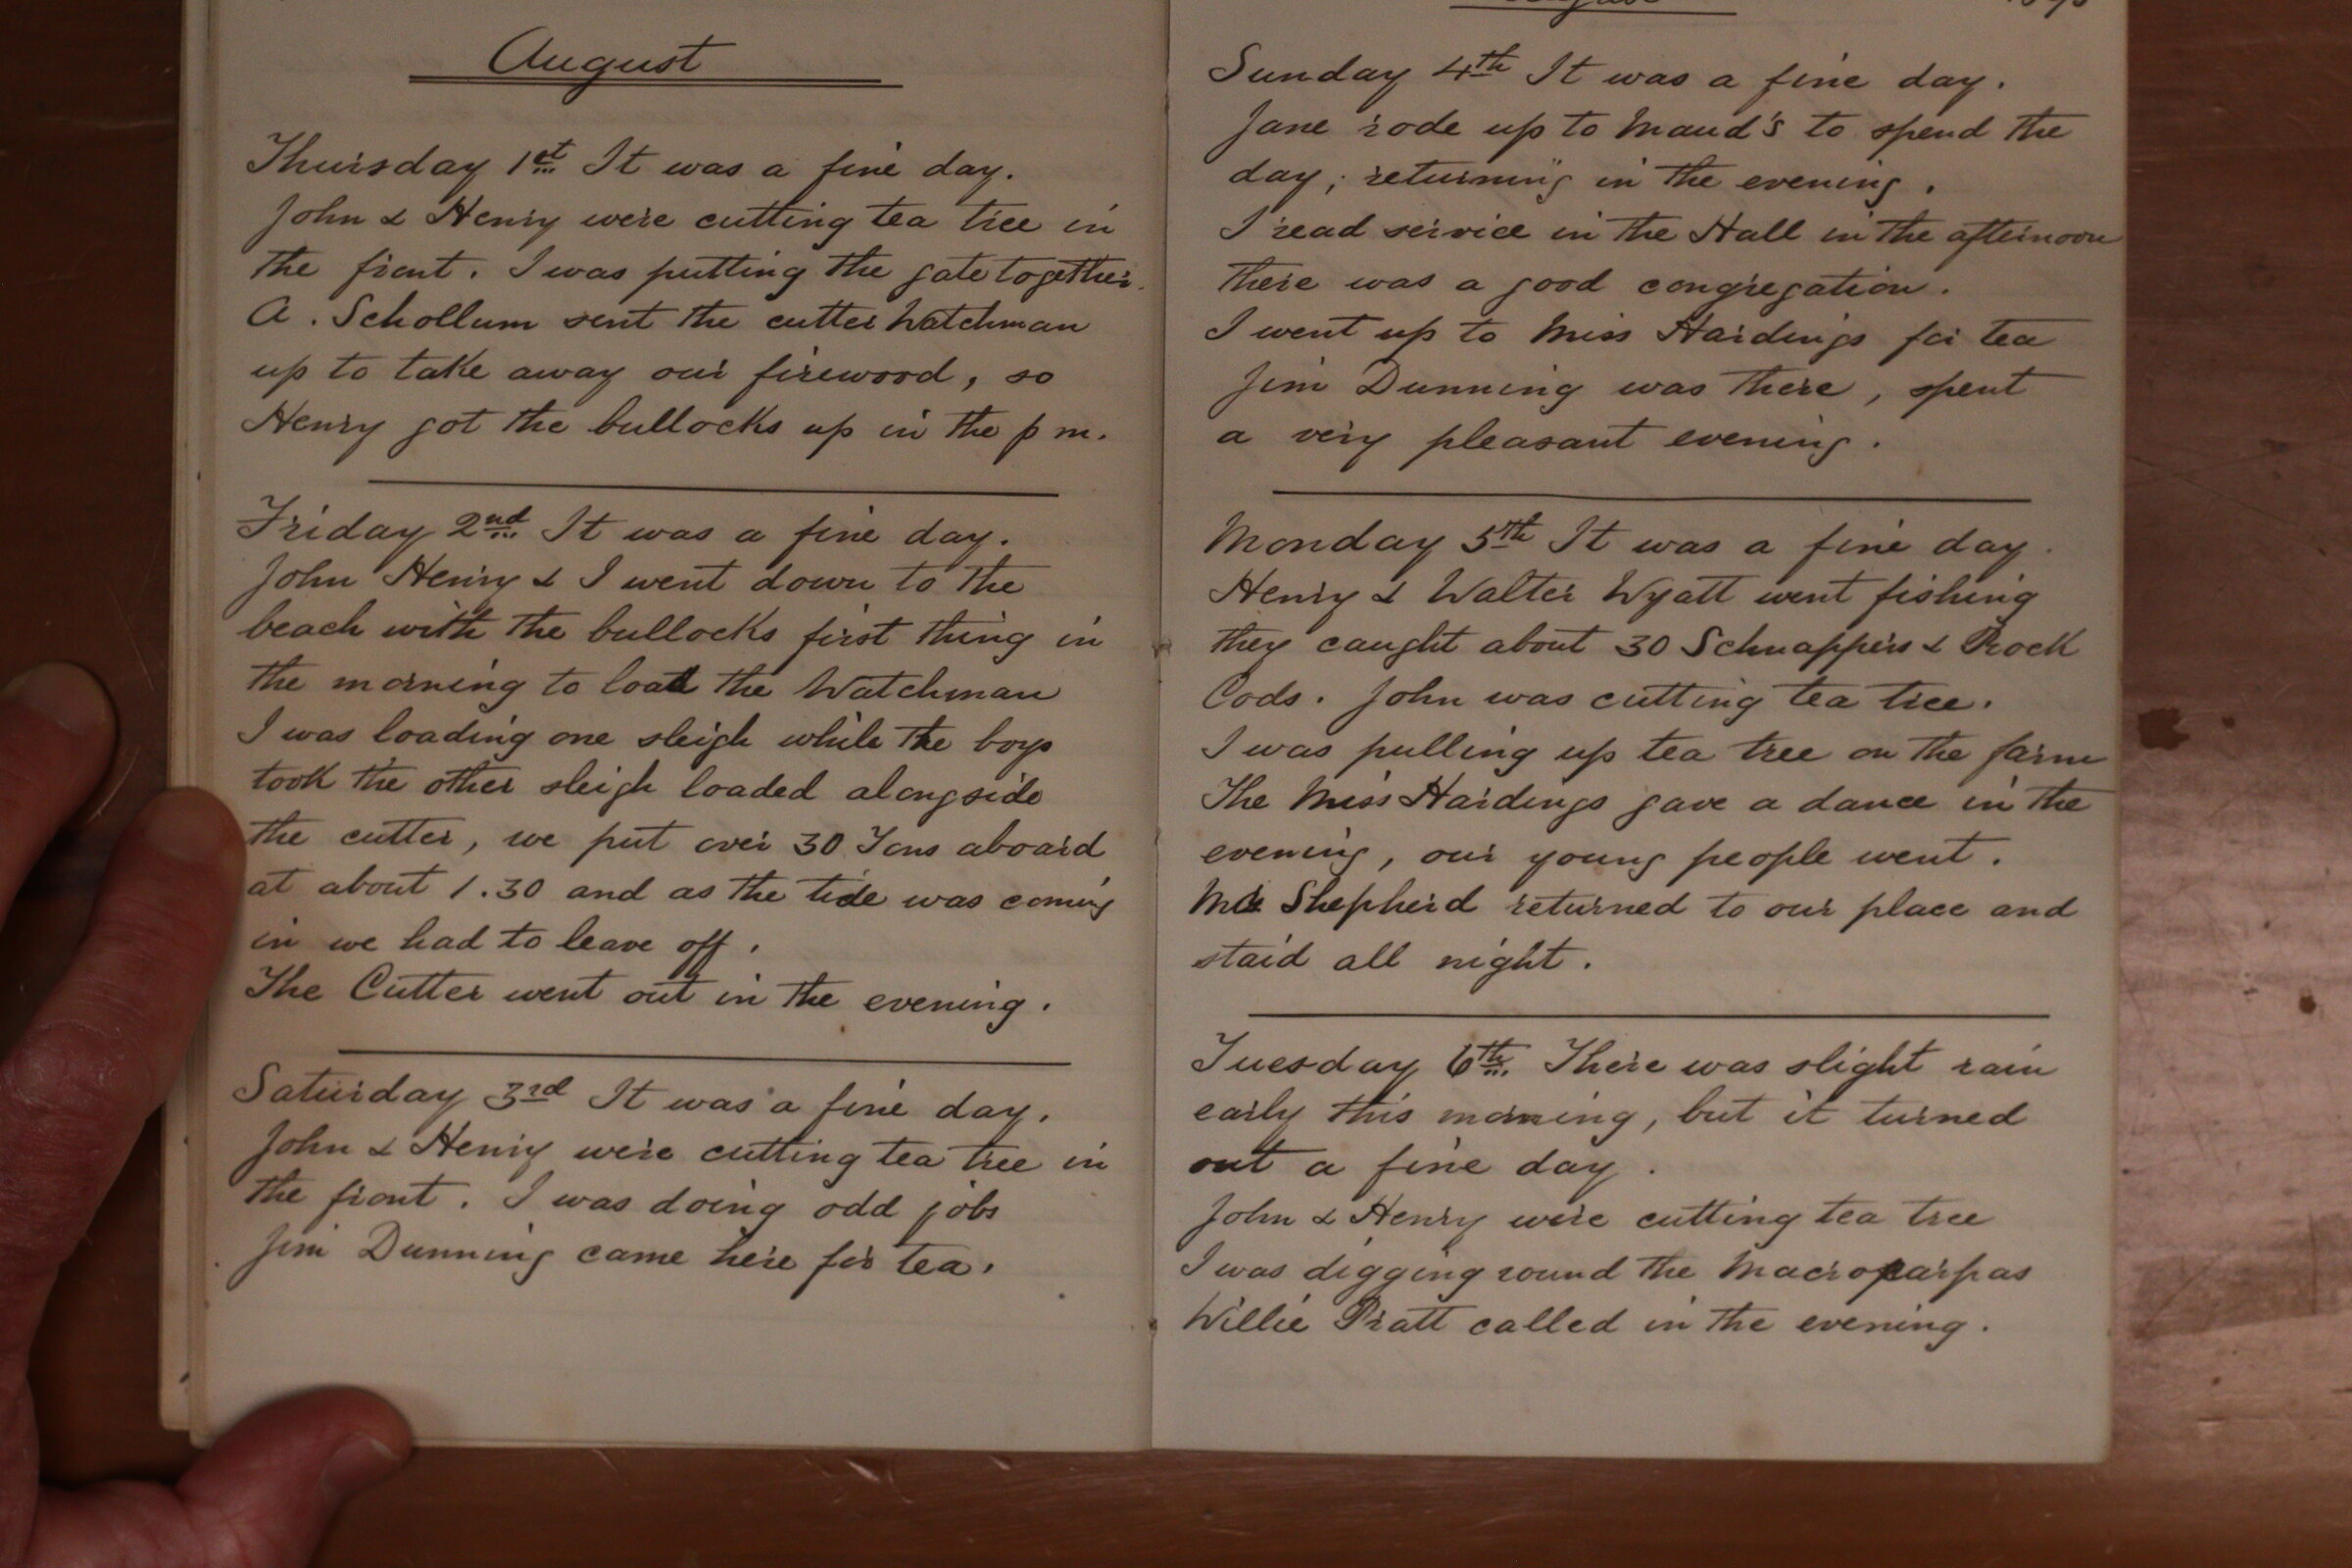 August
Thursday 1st It was a fine day.
John & Henry were cutting tea tree in
the front. I was putting the gate together.
A. Schollum sent the cutter Watchman
up to take away our firewood, so
Henry got the bullocks up in the p m.
Friday 2nd It was a fine day.
John Henry & I went down to the
beach with the bullocks first thing in
the morning to load the Watchman
I was loading one sleigh while the boys
took the other sleigh loaded alongside
the cutter, we put over 30 Tons aboard
at about 1.30 and as the tide was coming
in we had to leave off.
The Cutter went out in the evening.
Saturday 3rd It was a fine day.
John & Henry were cutting tea tree in
the front. I was doing odd jobs
Jim Dunning came here for tea.
Sunday 4th It was a fine day.
Jane rode up to Maud's to spend the
day; returning in the evening.
I read service in the Hall in the afternoon
there was a good congregation.
I went up to Miss Hardings for tea
Jim Dunning was there, spent
a very pleasant evening.
Monday 5th It was a fine day.
Henry & Walter Wyatt went fishing
they caught about 30 Schnappers & Rock
Cods. John was cutting tea tree.
I was pulling up tea tree on the farm
The Miss Hardings gave a dance in the
evening, our young people went.
Shepherd returned to our place and
staid all night.
Tuesday 6th. There was slight rain
early this morning, but it turned
out a fine day.
John & Henry were cutting tea tree
I was digging round the Macrocarpas
Willie Pratt called in the evening.